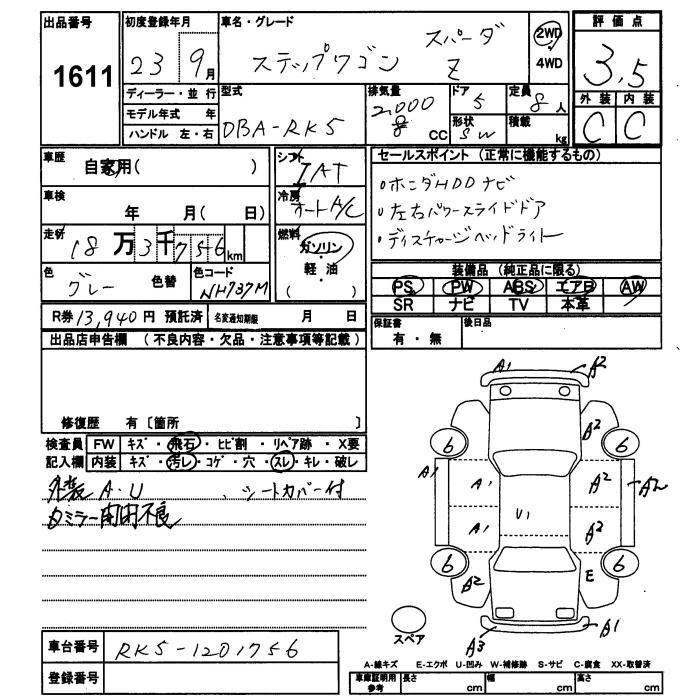 出品番号 1611
初度登録年月 23 9月
車名・グレード ステップワゴン スパーダ Z
2WD
4WD
評価点 3.5
外装 内装
C C
ディーラー・並行
モデル年式 年
ハンドル 左・右
型式 DBA-RK5
排気量 2,000 CC
ドア 5
形状 SW
定員 8人
積載 kg
車歴 自家用( )
車検 年 月( 日)
走行 18万3千756km
色 グレー 色替
色コード NH737M
シフト IAT
冷房 オートA/C
燃料 ガソリン・
軽・油
( )
セールスポイント (正常に機能するもの)
・ホンダHDDナビ
・左右パワースライドドア
・ディスチャージヘッドライト
装備品 (純正品に限る)
PS PW ABS エアB AW
SR ナビ TV 本革
R券 13,940円 預託済 名変通知期限 月 日
保証書 有・無
後日品
出品店申告欄 (不良内容・欠品・注意事項等記載)
修復歴 有〔箇所 〕
検査員 FW キズ・飛石・ヒビ割・リペア跡・X要
記入欄 内装 キズ・汚レ・コゲ・穴・スレ・キレ・破レ
外装 A・U 、シートカバー付
ミラー開閉不良
A1 A2
A2
6 6
A1 A1 A2 A2
A1 U1 A2
6 6
A2 E
A3 A1
スペア
車台番号 RK5-1201756
登録番号
A-線キズ E-エクボ U-凹み W-補修跡 S-サビ C-腐食 XX-取替済
車庫証明用参考 長さ cm 幅 cm 高さ cm